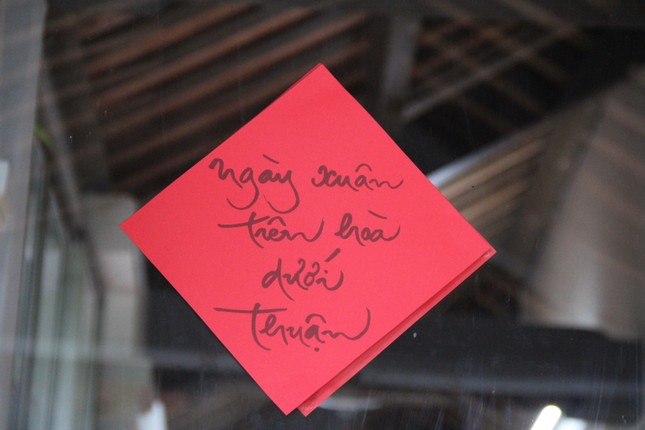 ngày xuân
trên hoà
dưới
thuận